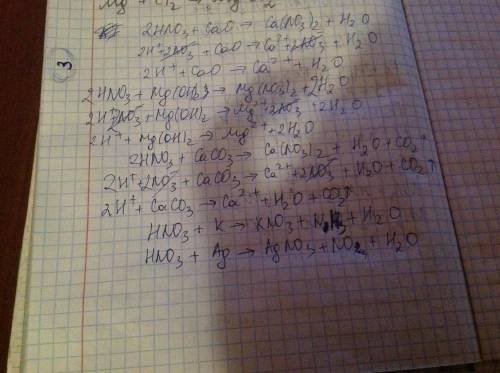 3
2HNO₃ + CaO → Ca(NO₃)₂ + H₂O
2H⁺ + 2NO₃⁻ + CaO → Ca²⁺ + 2NO₃⁻ + H₂O
2H⁺ + CaO → Ca²⁺ + H₂O
2HNO₃ + Mg(OH)₂ → Mg(NO₃)₂ + 2H₂O
2H⁺ + 2NO₃⁻ + Mg(OH)₂ → Mg²⁺ + 2NO₃⁻ + 2H₂O
2H⁺ + Mg(OH)₂ → Mg²⁺ + 2H₂O
2HNO₃ + CaCO₃ → Ca(NO₃)₂ + H₂O + CO₂↑
2H⁺ + 2NO₃⁻ + CaCO₃ → Ca²⁺ + 2NO₃⁻ + H₂O + CO₂↑
2H⁺ + CaCO₃ → Ca²⁺ + H₂O + CO₂↑
HNO₃ + K → KNO₃ + + H₂O
HNO₃ + Ag → AgNO₃ + NO₂ + H₂O